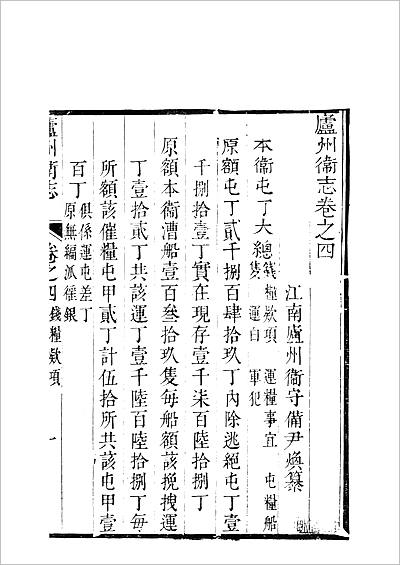 廬州衛志卷之四
江南廬州衛守備尹煥纂
本衛屯丁大總
錢糧欵項 運糧事宜 屯糧船
隻 運白 軍犯
原額屯丁貳千捌百肆拾玖丁內除逃絕屯丁壹
千捌拾壹丁實在現存壹千柒百陸拾捌丁
原額本衛漕船壹百叁拾玖隻每船額該挽拽運
丁壹拾貳丁共該運丁壹千陸百陸拾捌丁每
所額該催糧屯甲貳丁計伍拾所共該屯甲壹
百丁
俱係運屯差丁
原無編派徭銀
廬州衛志 卷之四 錢糧欵項 一